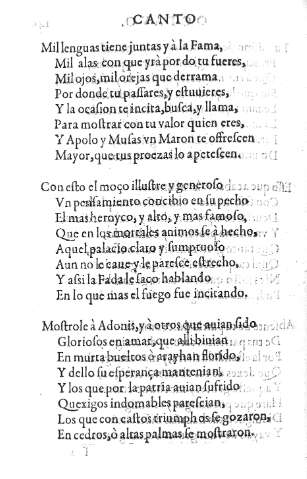 CANTO
Mil lenguas tiene juntas y à la Fama,
Mil alas con que yrà por do tu fueres,
Mil ojos, mil orejas que derrama
Por donde tu passares, y estuuieres,
Y la ocasion te incita, busca, y llama,
Para mostrar con tu valor quien eres,
Y Apolo y Musas vn Maron te offrescen
Mayor, que tus proezas lo apetescen.
Con esto el moço illustre y generoso
Vn pensamiento concibio en su pecho
El mas heroyco, y alto, y mas famoso,
Que en los mortales animos se à hecho,
Aquel palacio claro y sumptuoso
Aun no le caue y le paresce estrecho,
Y assi la Fada le saco hablando
En lo que mas el fuego fue incitando.
Mostrole à Adonis, y à otros que auian sido
Gloriosos en amar, que alli biuian
En murta bueltos ò arayhan florido,
Y dello su esperança mantenian,
Y los que por la patria auian sufrido
Quexigos indomables parescian,
Los que con castos triumphos se gozaron,
En cedros, ò altas palmas se mostraron.